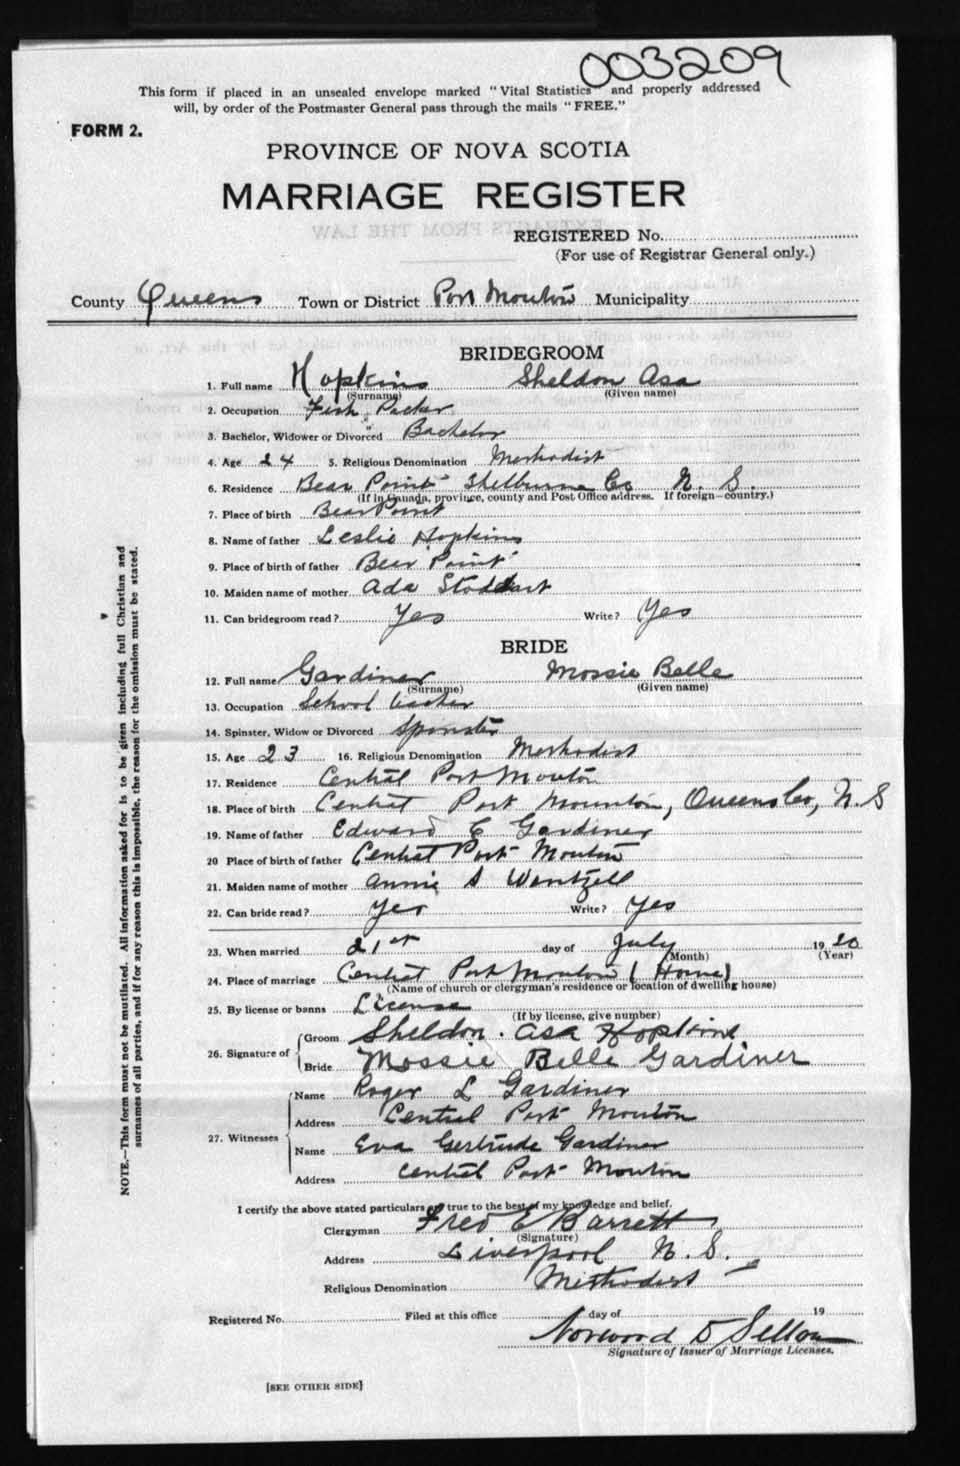 003209
This form if placed in an unsealed envelope marked "Vital Statistics" and properly addressed
will, by order of the Postmaster General pass through the mails "FREE."
FORM 2.
PROVINCE OF NOVA SCOTIA
MARRIAGE REGISTER
EXTRACTS FROM THE LAW
REGISTERED No.
(For use of Registrar General only.)
County Queens Town or District Port Mouton Municipality
BRIDEGROOM
1. Full name Hopkins Sheldon Asa
(Surname) (Given name)
2. Occupation Fish Packer
3. Bachelor, Widower or Divorced Bachelor
4. Age 24 5. Religious Denomination Methodist
6. Residence Bear Point Shelburne Co N. S.
(If in Canada, province, county and Post Office address. If foreign—country.)
7. Place of birth Bear Point
8. Name of father Leslie Hopkins
9. Place of birth of father Bear Point
10. Maiden name of mother Ada Stoddart
11. Can bridegroom read? Yes Write? Yes
BRIDE
12. Full name Gardiner Mossie Belle
(Surname) (Given name)
13. Occupation School teacher
14. Spinster, Widow or Divorced Spinster
15. Age 23 16. Religious Denomination Methodist
17. Residence Central Port Mouton
18. Place of birth Central Port Mounton, Queens Co, N. S
19. Name of father Edward C Gardiner
20 Place of birth of father Central Port Mouton
21. Maiden name of mother Annie S Wentzell
22. Can bride read? Yes Write? Yes
23. When married 21st day of July 1920
(Month) (Year)
24. Place of marriage Central Port Mouton (Home)
(Name of church or clergyman's residence or location of dwelling house)
25. By license or banns License
(If by license, give number)
26. Signature of Groom Sheldon Asa Hopkins
Bride Mossie Belle Gardiner
27. Witnesses Name Roger L Gardiner
Address Central Port Mouton
Name Eva Gertrude Gardiner
Address Central Port Mouton
I certify the above stated particulars are true to the best of my knowledge and belief.
Clergyman Fred E Barrett
(Signature)
Address Liverpool N. S.
Religious Denomination Methodist
Registered No. Filed at this office day of 19
Norwood D Sellon
Signature of Issuer of Marriage Licenses.
[SEE OTHER SIDE]
NOTE.—This form must not be mutilated. All information asked for is to be given including full Christian and
surnames of all parties, and if for any reason this is impossible, the reason for the omission must be stated.